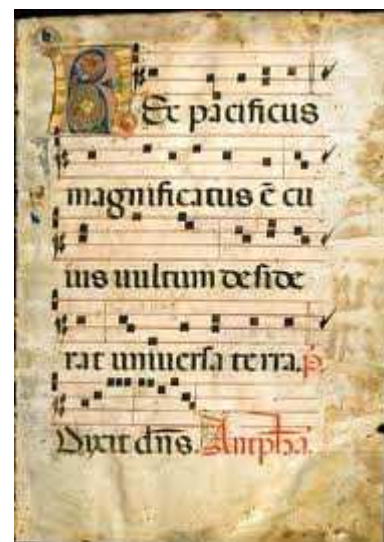 REx pacificus
magnificatus ē cu
ius uultum deside
rat uniuersa terra. p̄.
Dixit dn̄s. Antipha.